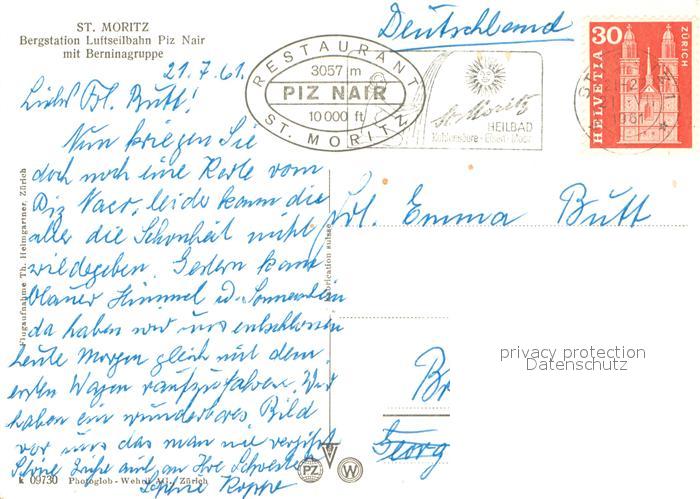 ST. MORITZ
Bergstation Luftseilbahn Piz Nair
mit Berninagruppe
Deutschland
21.7.61.
RESTAURANT
3057 m
PIZ NAIR
10 000 ft
ST. MORITZ
St. Moritz
HEILBAD
30
HELVETIA
ZÜRICH
1961
Liebes Frl. Butt!
Nun kriegen Sie
doch noch eine Karte vom
Piz Naer, leider kann die
alle die Schönheit nicht
wiedegeben. Gestern kam
blauer Himmel u. Sonnenschein
da haben wir uns entschlossen
heute Morgen gleich mit dem
ersten Wagen raufzufahren. Wir
haben ein wunderbares Bild
vor uns das man nie vergißt.
Schöne Grüße auch an Ihre Schwester
Frl. Emma Butt
privacy protection
Datenschutz
Br
Georg
Flugaufnahme Th. Heimgartner, Zürich
Fabrication suisse
k 09730 Photoglob-Wehrli AG., Zürich
PZ W